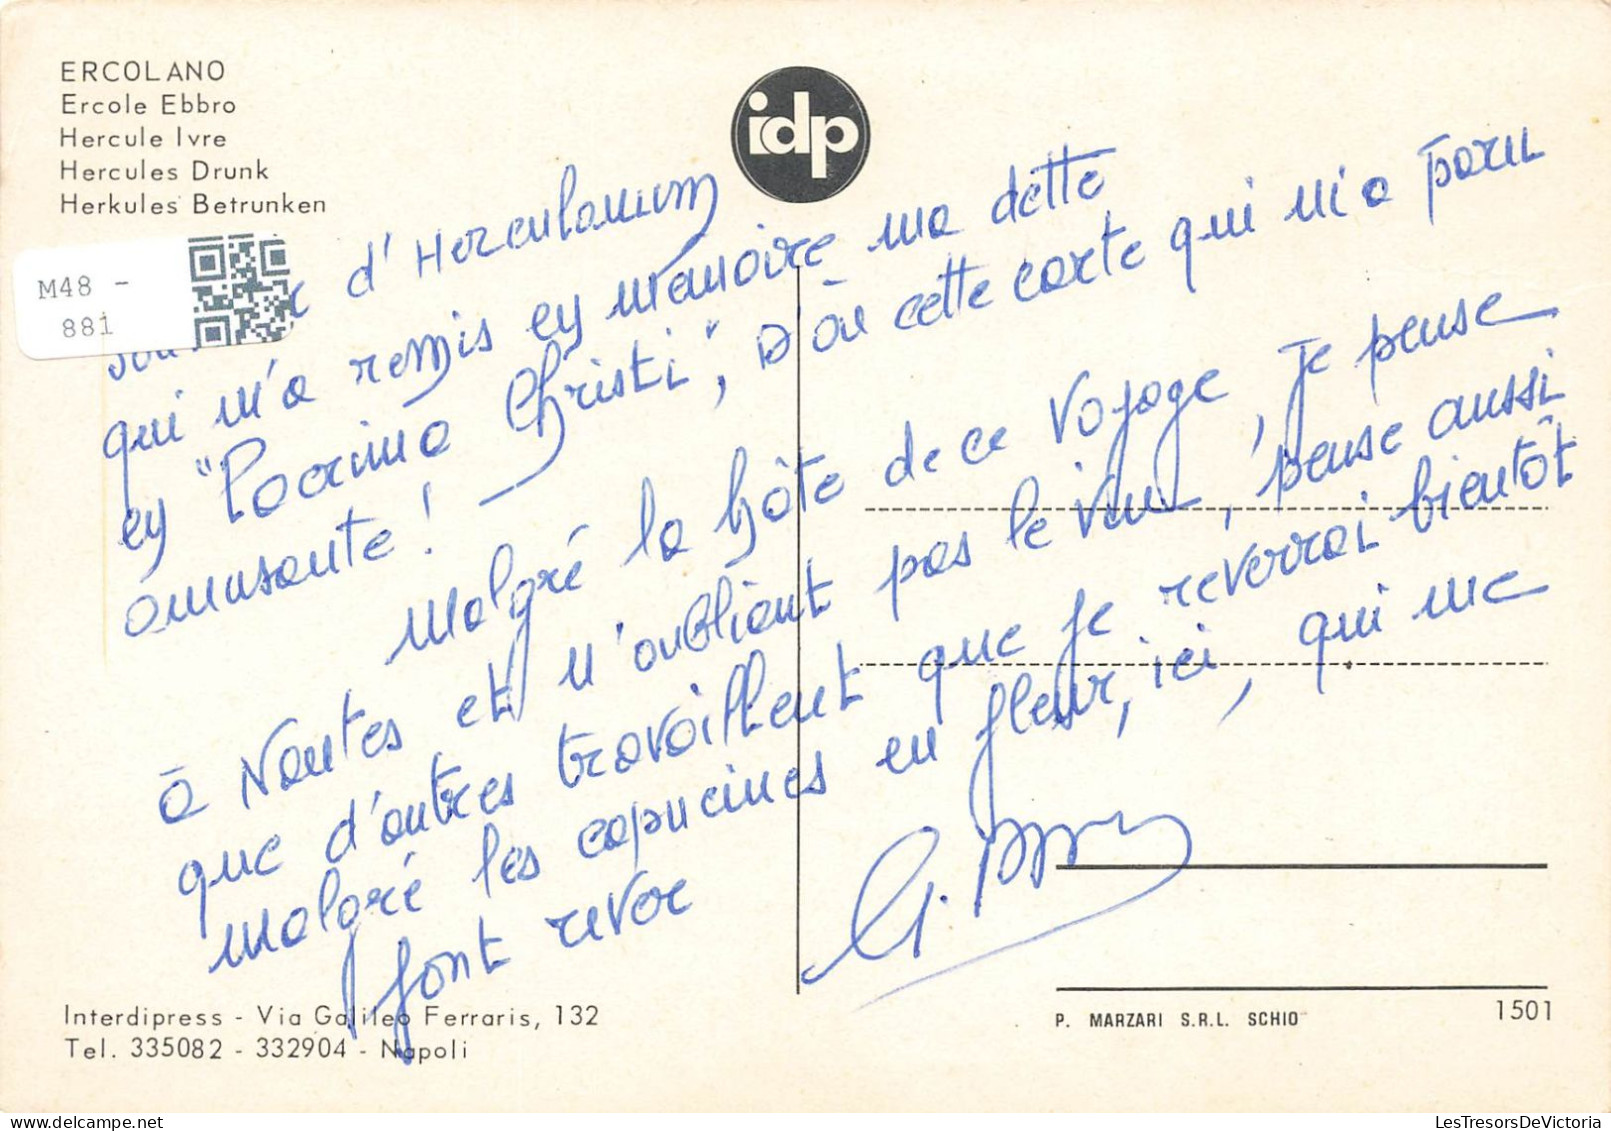 ERCOLANO
Ercole Ebbro
Hercule Ivre
Hercules Drunk
Herkules Betrunken
idp
M48 -
881
d'Herculanum
qui m'a remis en mémoire ma dette
en "Lacrima Christi", d'où cette carte qui m'a paru
amusante! —
Malgré la hâte de ce voyage, je pense
à Nantes et n'oublient pas le vin, pense aussi
que d'autres travaillent que je reverrai bientôt
malgré les capucines en fleur, ici, qui me
font rêver
G.
Interdipress - Via Galileo Ferraris, 132
Tel. 335082 - 332904 - Napoli
P. MARZARI S.R.L. SCHIO
1501
LesTresorsDeVictoria